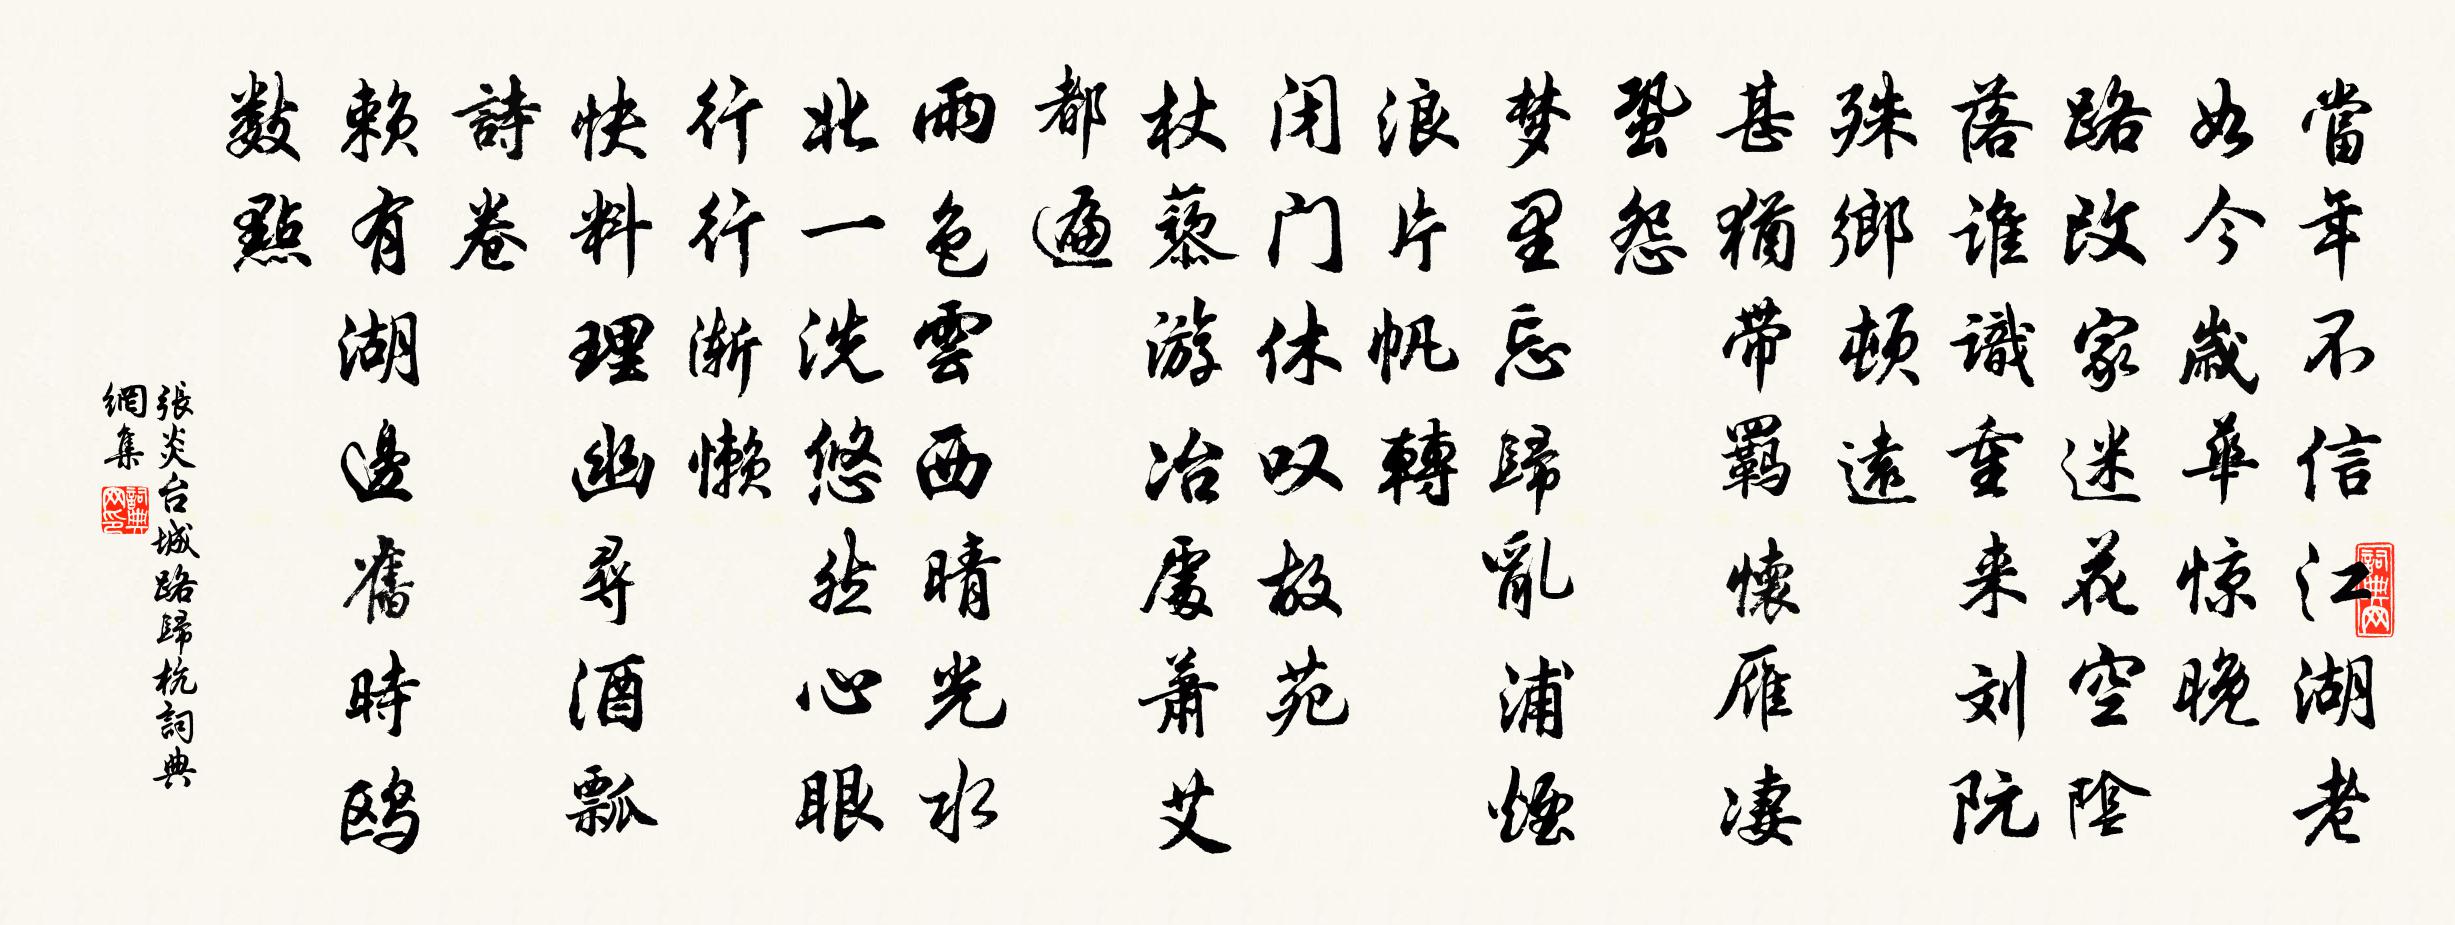 當年不信江湖老
如今歲華惊晚
路改家迷花空陰
落谁識重来刘阮
殊鄉頓遠
甚猶带羁懷雁凄
蛩怨
梦里忘歸亂浦煙
浪片帆轉
闭门休叹故苑
杖藜游冶處萧艾
都遍
雨色雲西晴光水
北一洗悠然心眼
行行渐懒
快料理幽尋酒瓢
詩卷
赖有湖邊舊時鸥
数點
張炎台城路歸杭詞典
網集
詞典网
詞典网印